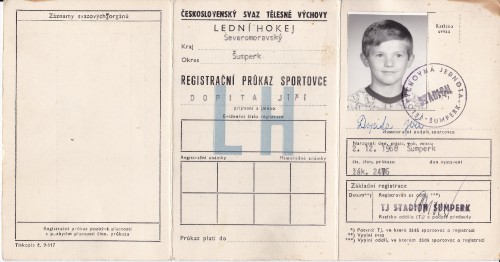 Záznamy svazových orgánů
Registrační průkaz pozbývá platnosti
s pozbytím platnosti člen. průkazu
Tiskopis č. 9-117
ČESKOSLOVENSKÝ SVAZ TĚLESNÉ VÝCHOVY
LEDNÍ HOKEJ
Severomoravský
Kraj
Šumperk
Okres
REGISTRAČNÍ PRŮKAZ SPORTOVCE
DOPITA JIŘÍ
příjmení a jméno
Evidenční číslo registrace
LH
Registrační známky
Hostovačky známky
Průkaz platí do
Razítko
svazu
TĚLOVÝCHOVNÁ JEDNOTA
STADION
ŠUMPERK
Dopita Jiří
vlastnoruční podpis sportovce
Narozen: den, měsíc, rok, místo
2. 12. 1968 Šumperk
čís. člen. průkazu
den vystavení
žák. 2476
Základní registrace
Datum**)
Registrován za oddíl ***)
TJ STADION ŠUMPERK
Razítko oddílu (TJ) a podpis předsedy
*) Potvrdí TJ, ve které žádá sportovec o registraci
**) Vyplní svaz
***) Vyplní oddíl, ve kterém žádá sportovec o registraci